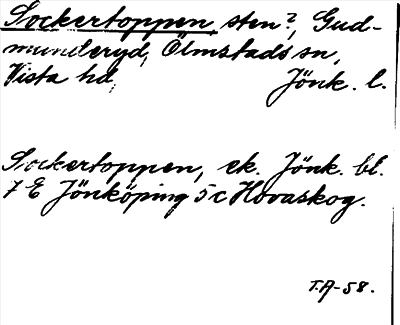 Sockertoppen sten?, Gud-
munderyd, Ölmstads sn,
Vista hd, Jönk. l.
Sockertoppen, ek. Jönk. bl.
7 E Jönköping 5 c Hovaskog.
T.A-58.